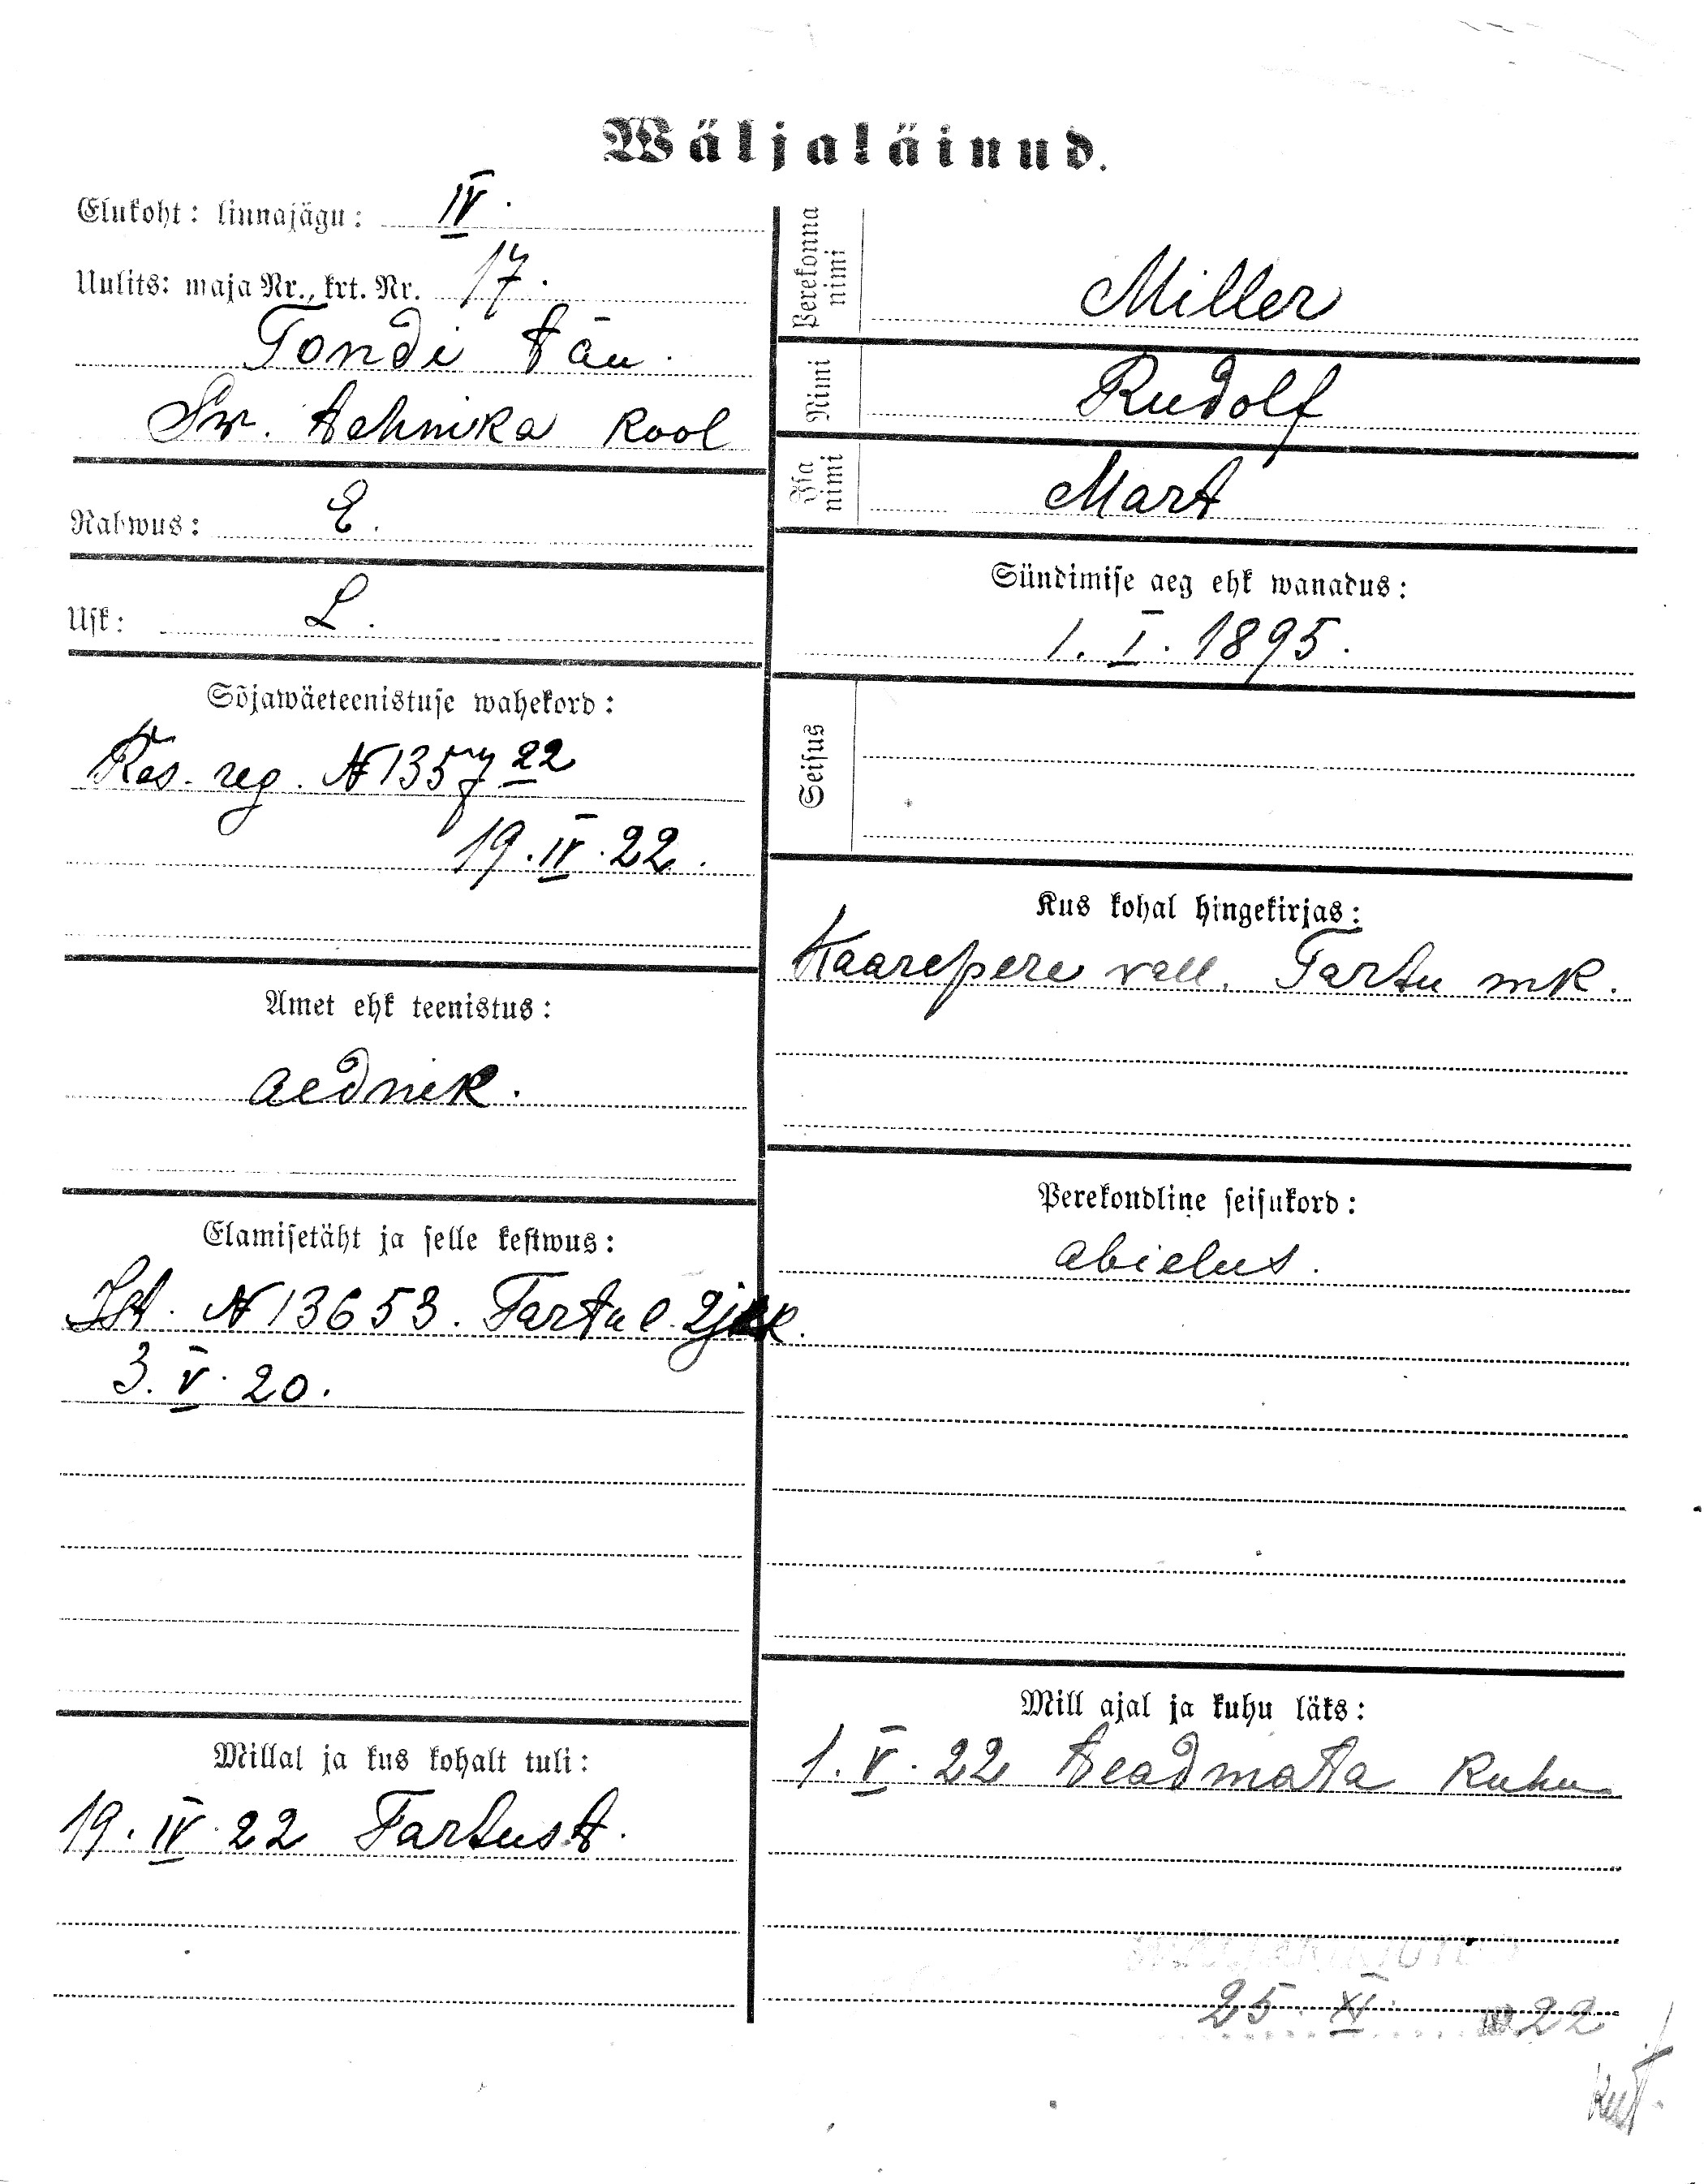 Wäljaläinud.
Elukoht: linnajagu: IV.
Uulits: maja Nr., krt. Nr. 17.
Tondi tän.
Sw. tehnika kool
Rahwus: E.
Usk: L.
Sõjawäeteenistuse wahekord:
Res. reg. № 1357 22
19. IV. 22.
Amet ehk teenistus:
aednik.
Elamisetäht ja selle kestwus:
Ist. № 13653. Tartu l. 2 jsk.
3. V. 20.
Millal ja kus kohalt tuli:
19. IV. 22 Tartust.
Perekonna nimi Miller
Nimi Rudolf
Isa nimi Mart
Sündimise aeg ehk wanadus:
1. I. 1895.
Seisus
Kus kohal hingekirjas:
Kaarepere vall. Tartu mk.
Perekondline seisukord:
abielus.
Mill ajal ja kuhu läks:
1. V. 22 teadmata kuhu
25. XI. 22